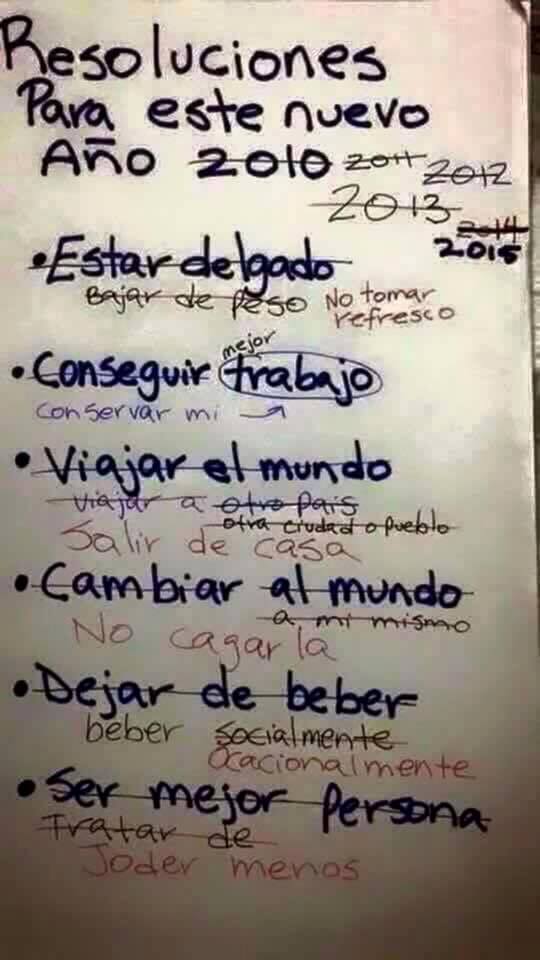 Resoluciones
Para este nuevo
Año 2010 2011 2012
2013 2014
2015
• Estar delgado
Bajar de peso No tomar
refresco
mejor
• Conseguir trabajo
conservar mi →
• Viajar el mundo
viajar a otro país
otra ciudad o pueblo
Salir de casa
• Cambiar al mundo
a mi mismo
No cagarla
• Dejar de beber
beber socialmente
Ocacionalmente
• Ser mejor persona
Tratar de
Joder menos